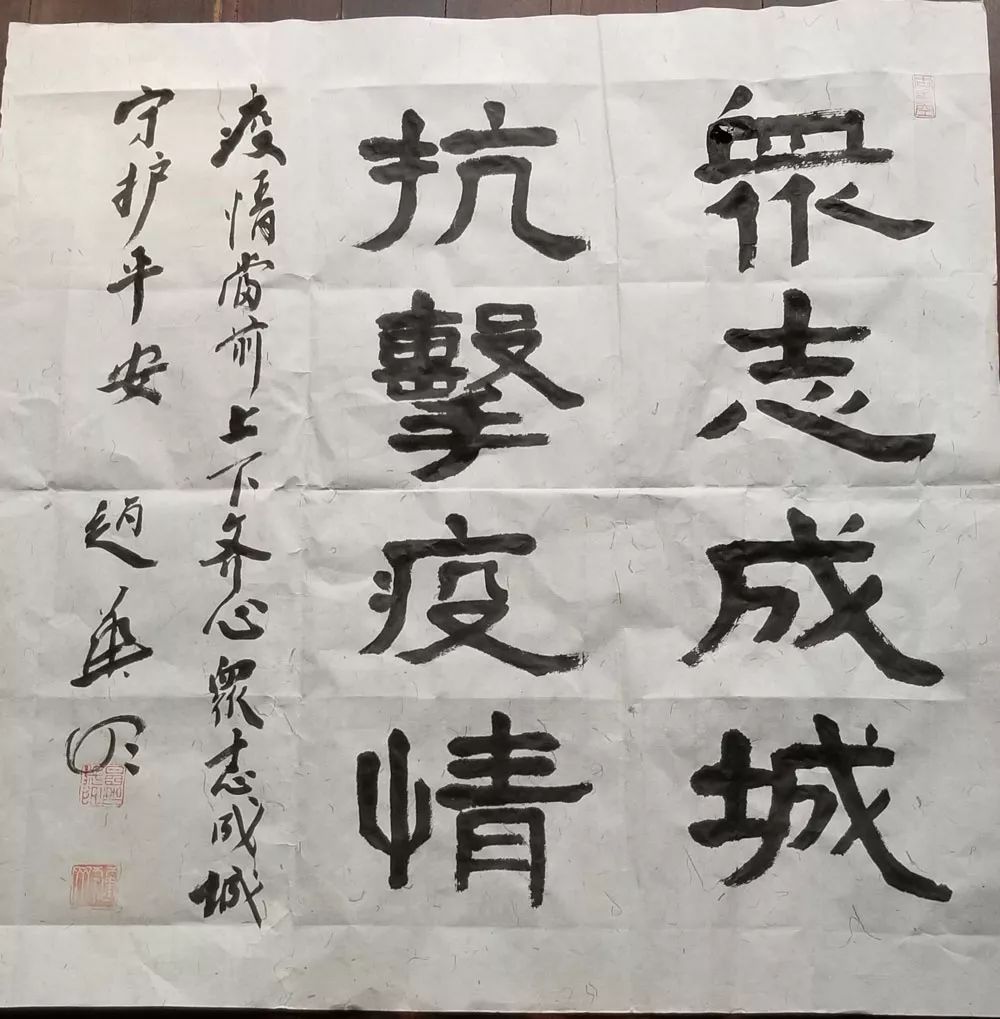 衆志成城
抗擊疫情
疫情當前上下齐心衆志成城
守护平安
趙